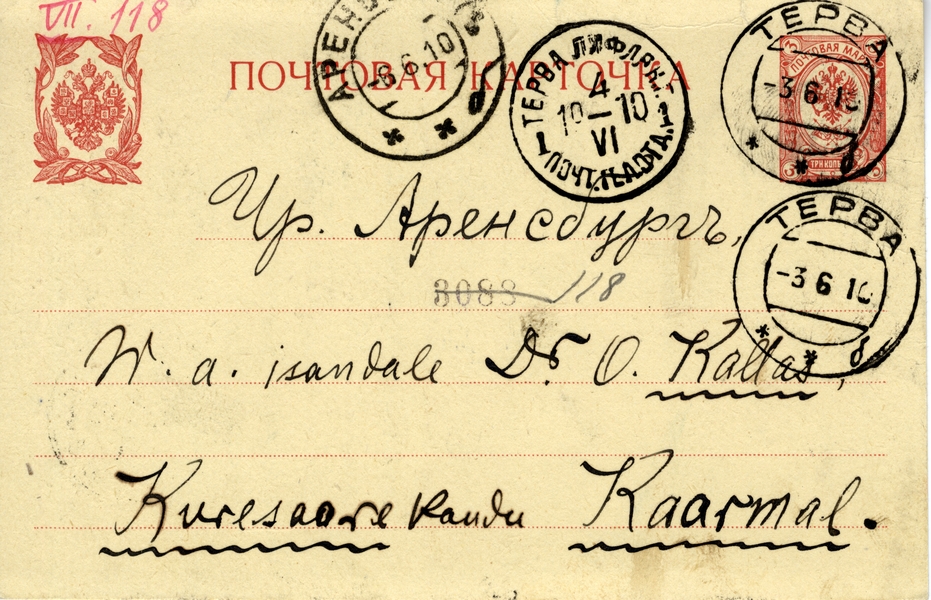 VII. 118
ПОЧТОВАЯ КАРТОЧКА
АРЕНСБ
-6.6.10
б
ТЕРВА ЛИФЛЯН.
4
10—10
VI
1 ПОЧТ.ТЕЛ.ОТД. 1
ТЕРВА
-3 6 10
б
3 ПОЧТОВАЯ МАР
3 ТРИ КОП 3
Чр. Аренсбургъ,
ТЕРВА
-3 6 10
б
3088 118
W. a. isandale Dr. O. Kallas,
Kuresaare kaudu Kaarmal.